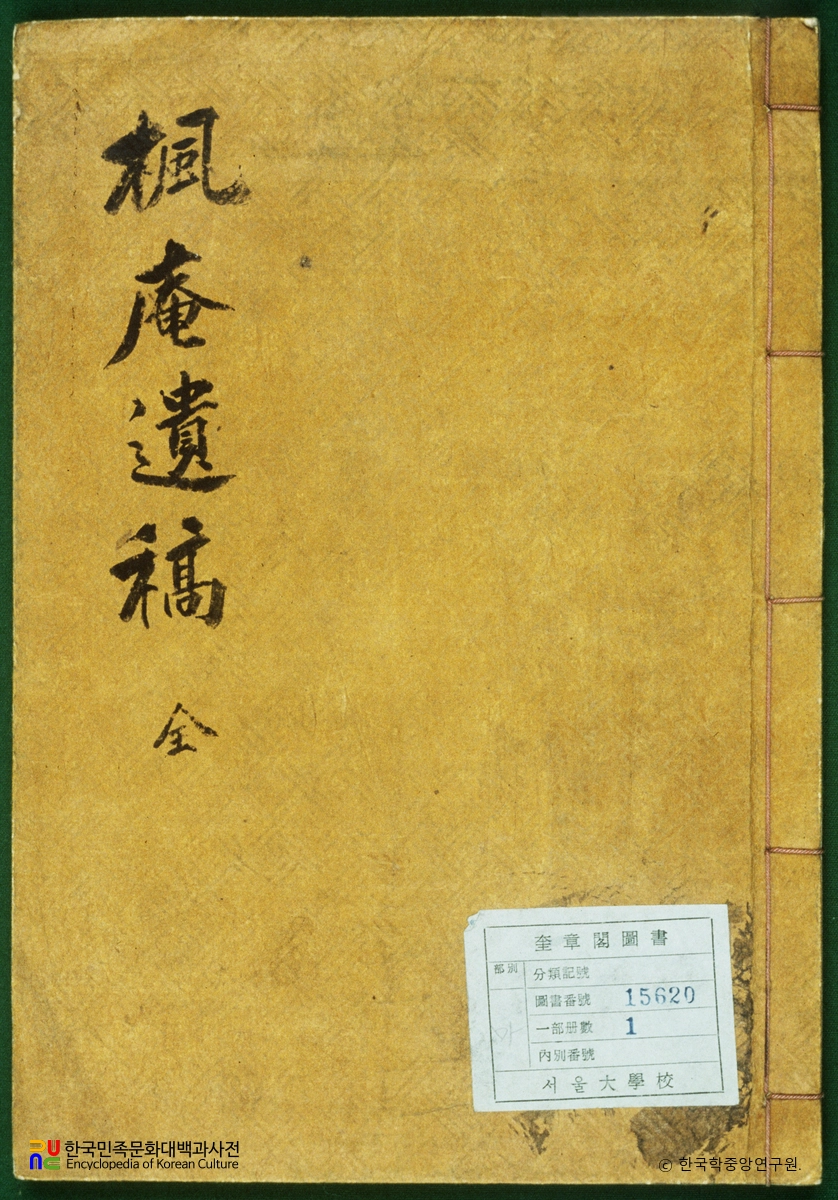 楓庵遺稿 全
奎章閣圖書
部別
分類記號
圖書番號 15620
一部册數 1
內別番號
서울大學校
한국민족문화대백과사전
Encyclopedia of Korean Culture
© 한국학중앙연구원.